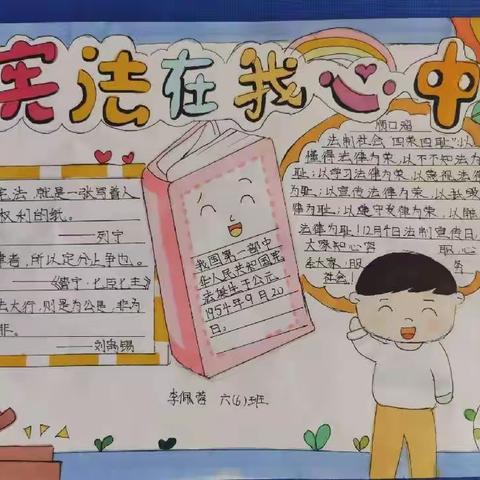 宪法在我心中
宪法,就是一张写着人
权利的纸。
——列宁
律者,所以定分止争也。
——《管子·七臣七主》
法大行,则是为公是,非为
非。
——刘禹锡
我国第一部中
华人民共和国宪
法诞生于公元
1954年9月20
日。
李佩蓉 六(6)班
顺口溜
法制社会"四荣四耻":以
懂得法律为荣,以不知法为
耻;以学习法律为荣,以
为耻;以宣传法律为荣,以
为耻;以遵守法律为荣,以
法律为耻!12月4日法制宣传日,
大家
社会!